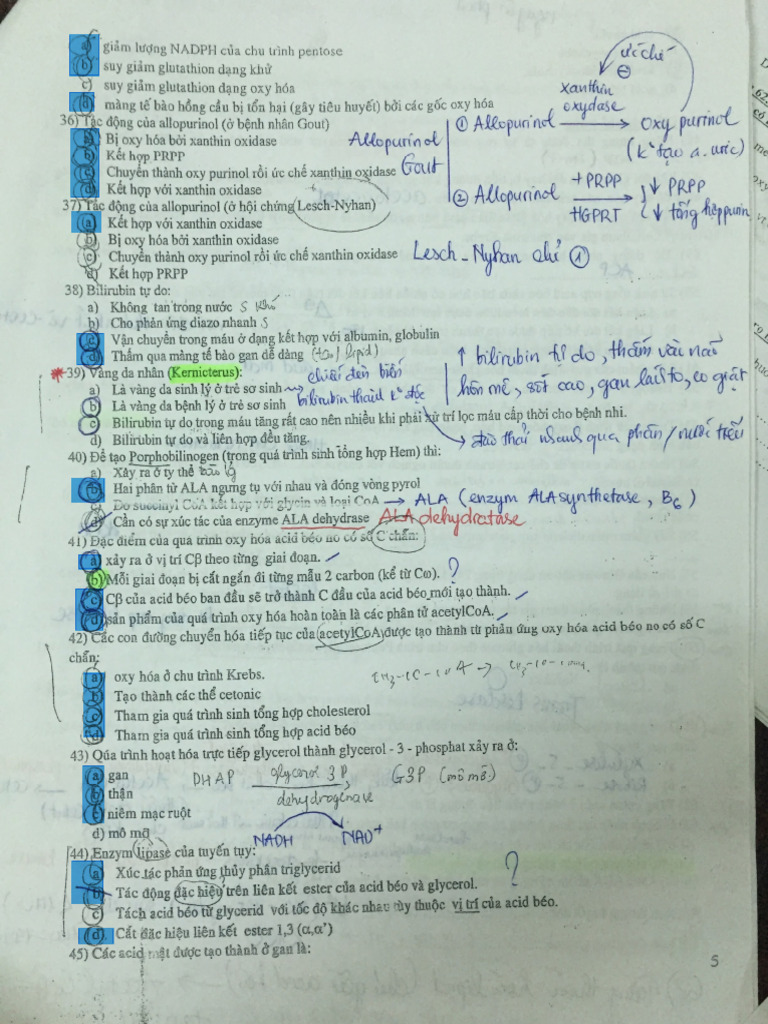 a) giảm lượng NADPH của chu trình pentose
b) suy giảm glutathion dạng khử
c) suy giảm glutathion dạng oxy hóa
d) màng tế bào hồng cầu bị tổn hại (gây tiêu huyết) bởi các gốc oxy hóa
36) Tác động của allopurinol (ở bệnh nhân Gout)
a) Bị oxy hóa bởi xanthin oxidase
b) Kết hợp PRPP
c) Chuyển thành oxy purinol rồi ức chế xanthin oxidase
d) Kết hợp với xanthin oxidase
Allopurinol
Gout
ức chế
⊖
① Allopurinol xanthin oxydase → oxy purinol
(k° tạo a. uric)
② Allopurinol +PRPP HGPRT → ↓ PRPP
↓ tổng hợp purin
37) Tác động của allopurinol (ở hội chứng Lesch-Nyhan)
a) Kết hợp với xanthin oxidase
b) Bị oxy hóa bởi xanthin oxidase
c) Chuyển thành oxy purinol rồi ức chế xanthin oxidase
d) Kết hợp PRPP
Lesch - Nyhan chỉ ①
38) Bilirubin tự do:
a) Không tan trong nước S
b) Cho phản ứng diazo nhanh S
c) Vận chuyển trong máu ở dạng kết hợp với albumin, globulin
d) Thấm qua màng tế bào gan dễ dàng (tan/lipid)
39) Vàng da nhân (Kernicterus):
a) Là vàng da sinh lý ở trẻ sơ sinh → chiếu đèn biến
b) Là vàng da bệnh lý ở trẻ sơ sinh bilirubin thành k° độc
c) Bilirubin tự do trong máu tăng rất cao nên nhiều khi phải xử trí lọc máu cấp thời cho bệnh nhi.
d) Bilirubin tự do và liên hợp đều tăng.
↑ bilirubin tự do, thấm vào não
hôn mê, sốt cao, gan lách to, co giật
→ đào thải nhanh qua phân/nước tiểu
40) Để tạo Porphobilinogen (trong quá trình sinh tổng hợp Hem) thì:
a) Xảy ra ở ty thể
b) Hai phân tử ALA ngưng tụ với nhau và đóng vòng pyrol
c) Do succinyl CoA kết hợp với glycin và loại CoA → ALA (enzym ALA synthetase, B6)
d) Cần có sự xúc tác của enzyme ALA dehydrase ALA dehydratase
41) Đặc điểm của quá trình oxy hóa acid béo no có số C chẵn:
a) xảy ra ở vị trí Cβ theo từng giai đoạn.
b) Mỗi giai đoạn bị cắt ngắn đi từng mẫu 2 carbon (kể từ Cω). ?
c) Cβ của acid béo ban đầu sẽ trở thành C đầu của acid béo mới tạo thành.
d) sản phẩm của quá trình oxy hóa hoàn toàn là các phân tử acetylCoA.
42) Các con đường chuyển hóa tiếp tục của acetylCoA được tạo thành từ phản ứng oxy hóa acid béo no có số C
chẵn:
a) oxy hóa ở chu trình Krebs.
b) Tạo thành các thể cetonic
c) Tham gia quá trình sinh tổng hợp cholesterol
d) Tham gia quá trình sinh tổng hợp acid béo
43) Qúa trình hoạt hóa trực tiếp glycerol thành glycerol - 3 - phosphat xảy ra ở:
a) gan
b) thận
c) niêm mạc ruột
d) mô mỡ
DHAP glycerol 3P dehydrogenase G3P (mô mỡ)
NADH NAD+
44) Enzym lipase của tuyến tụy:
a) Xúc tác phản ứng thủy phân triglycerid
b) Tác động đặc hiệu trên liên kết ester của acid béo và glycerol.
?
c) Tách acid béo từ glycerid với tốc độ khác nhau tùy thuộc vị trí của acid béo.
d) Cắt đặc hiệu liên kết ester 1,3 (α,α')
45) Các acid mật được tạo thành ở gan là:
5